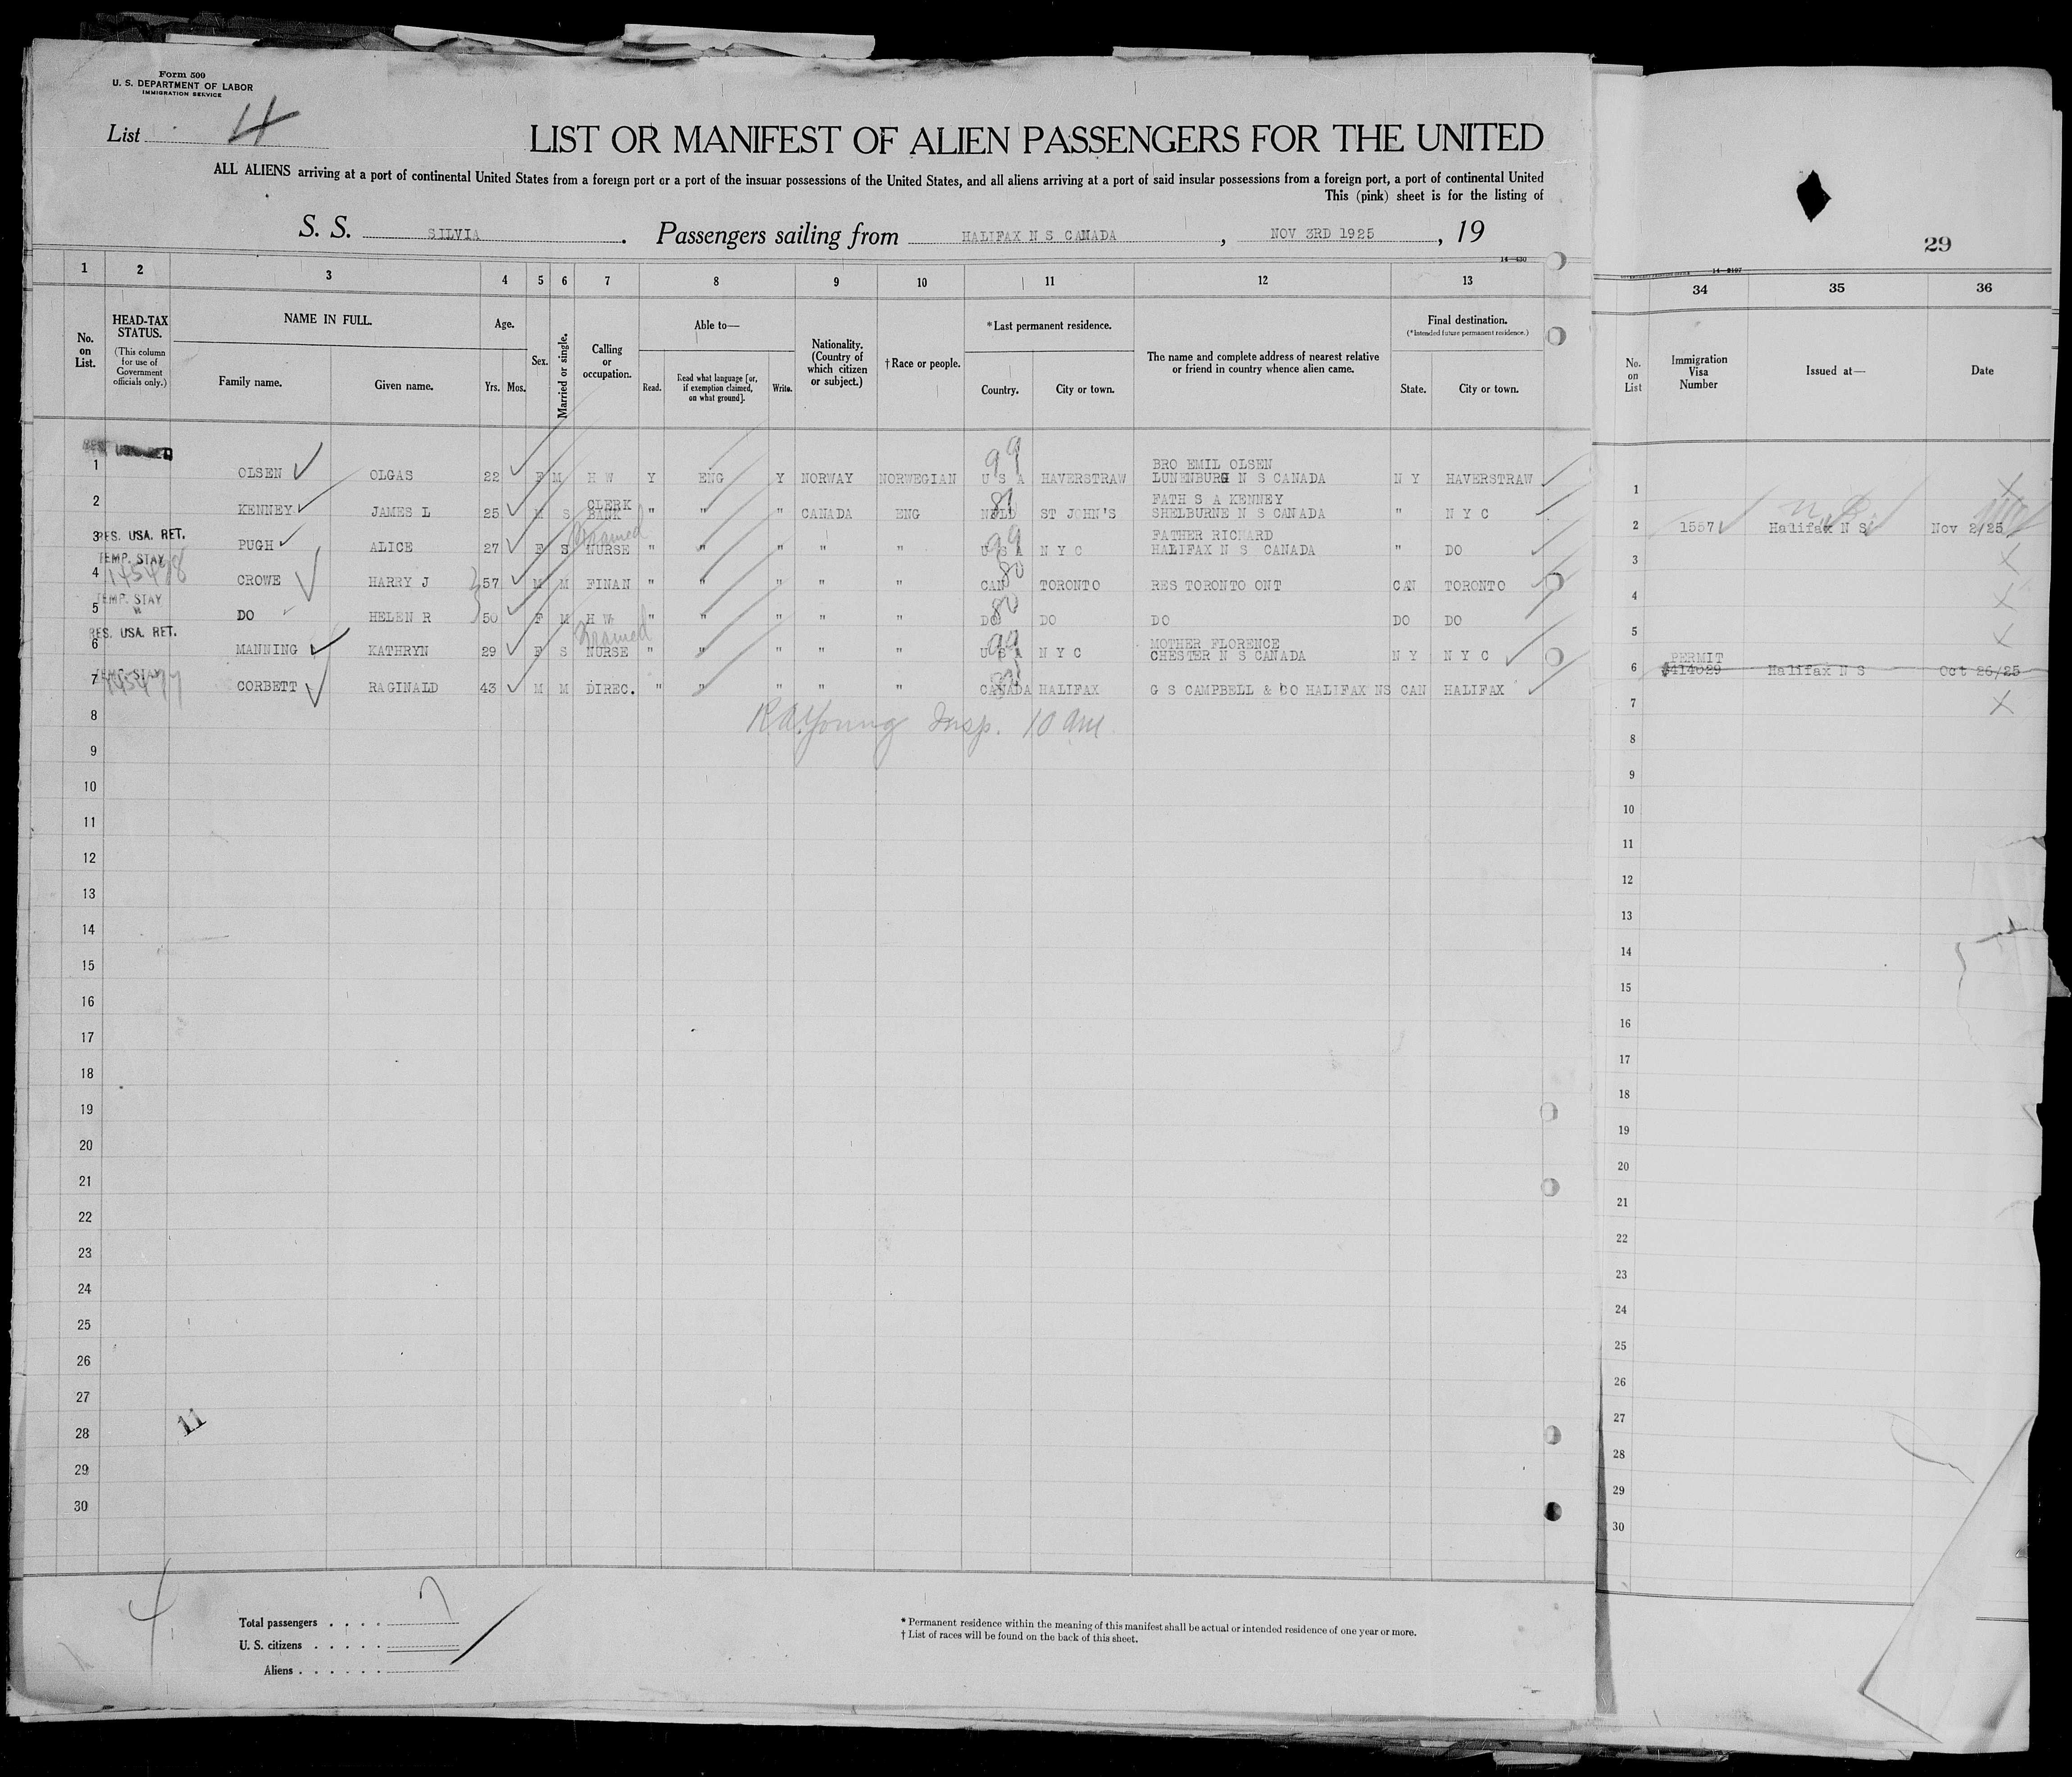 Form 500
U. S. DEPARTMENT OF LABOR
IMMIGRATION SERVICE
List 4
LIST OR MANIFEST OF ALIEN PASSENGERS FOR THE UNITED
ALL ALIENS arriving at a port of continental United States from a foreign port or a port of the insular possessions of the United States, and all aliens arriving at a port of said insular possessions from a foreign port, a port of continental United
This (pink) sheet is for the listing of
S. S. SILVIA . Passengers sailing from HALIFAX N S CANADA , NOV 3RD 1925 , 19
29
14-430
14-2107
1 2 3 4 5 6 7 8 9 10 11 12 13 34 35 36
No. on List.
HEAD-TAX STATUS.
(This column for use of Government officials only.)
NAME IN FULL.
Family name. Given name.
Age.
Yrs. Mos.
Sex.
Married or single.
Calling or occupation.
Able to—
Read. Read what language [or, if exemption claimed, on what ground]. Write.
Nationality. (Country of which citizen or subject.)
† Race or people.
* Last permanent residence.
Country. City or town.
The name and complete address of nearest relative or friend in country whence alien came.
Final destination.
(*Intended future permanent residence.)
State. City or town.
No. on List
Immigration Visa Number
Issued at—
Date
1 OLSEN OLGAS 22 F M H W Y ENG Y NORWAY NORWEGIAN 99 U S A HAVERSTRAW BRO EMIL OLSEN LUNENBURG N S CANADA N Y HAVERSTRAW 1 X
2 KENNEY JAMES L 25 M S CLERK BANK " " " CANADA ENG 81 NFLD ST JOHN'S FATH S A KENNEY SHELBURNE N S CANADA " N Y C 2 1557 Halifax N S Nov 2/25
3 RES. USA. RET. PUGH ALICE 27 F S NURSE " " " " " 99 U S A N Y C FATHER RICHARD HALIFAX N S CANADA " DO 3 X
4 TEMP. STAY CROWE HARRY J 57 M M FINAN " " " " " 80 CAN TORONTO RES TORONTO ONT CAN TORONTO 4 X
5 TEMP. STAY " DO HELEN R 50 F M H W " " " " " 80 DO DO DO DO DO 5 X
6 RES. USA. RET. MANNING KATHRYN 29 F S NURSE " " " " " 99 U S A N Y C MOTHER FLORENCE CHESTER N S CANADA N Y N Y C 6 PERMIT 414029 Halifax N S Oct 26/25
7 TEMP. STAY CORBETT RAGINALD 43 M M DIREC. " " " " " CANADA HALIFAX G S CAMPBELL & CO HALIFAX NS CAN HALIFAX 7 X
8 R.A. Young Insp. 10 am 8
9 9
10 10
11 11
12 12
13 13
14 14
15 15
16 16
17 17
18 18
19 19
20 20
21 21
22 22
23 23
24 24
25 25
26 26
27 27
11
28 28
29 29
30 30
4
Total passengers . . . . 7
U. S. citizens . . . . .
Aliens . . . . . .
* Permanent residence within the meaning of this manifest shall be actual or intended residence of one year or more.
† List of races will be found on the back of this sheet.